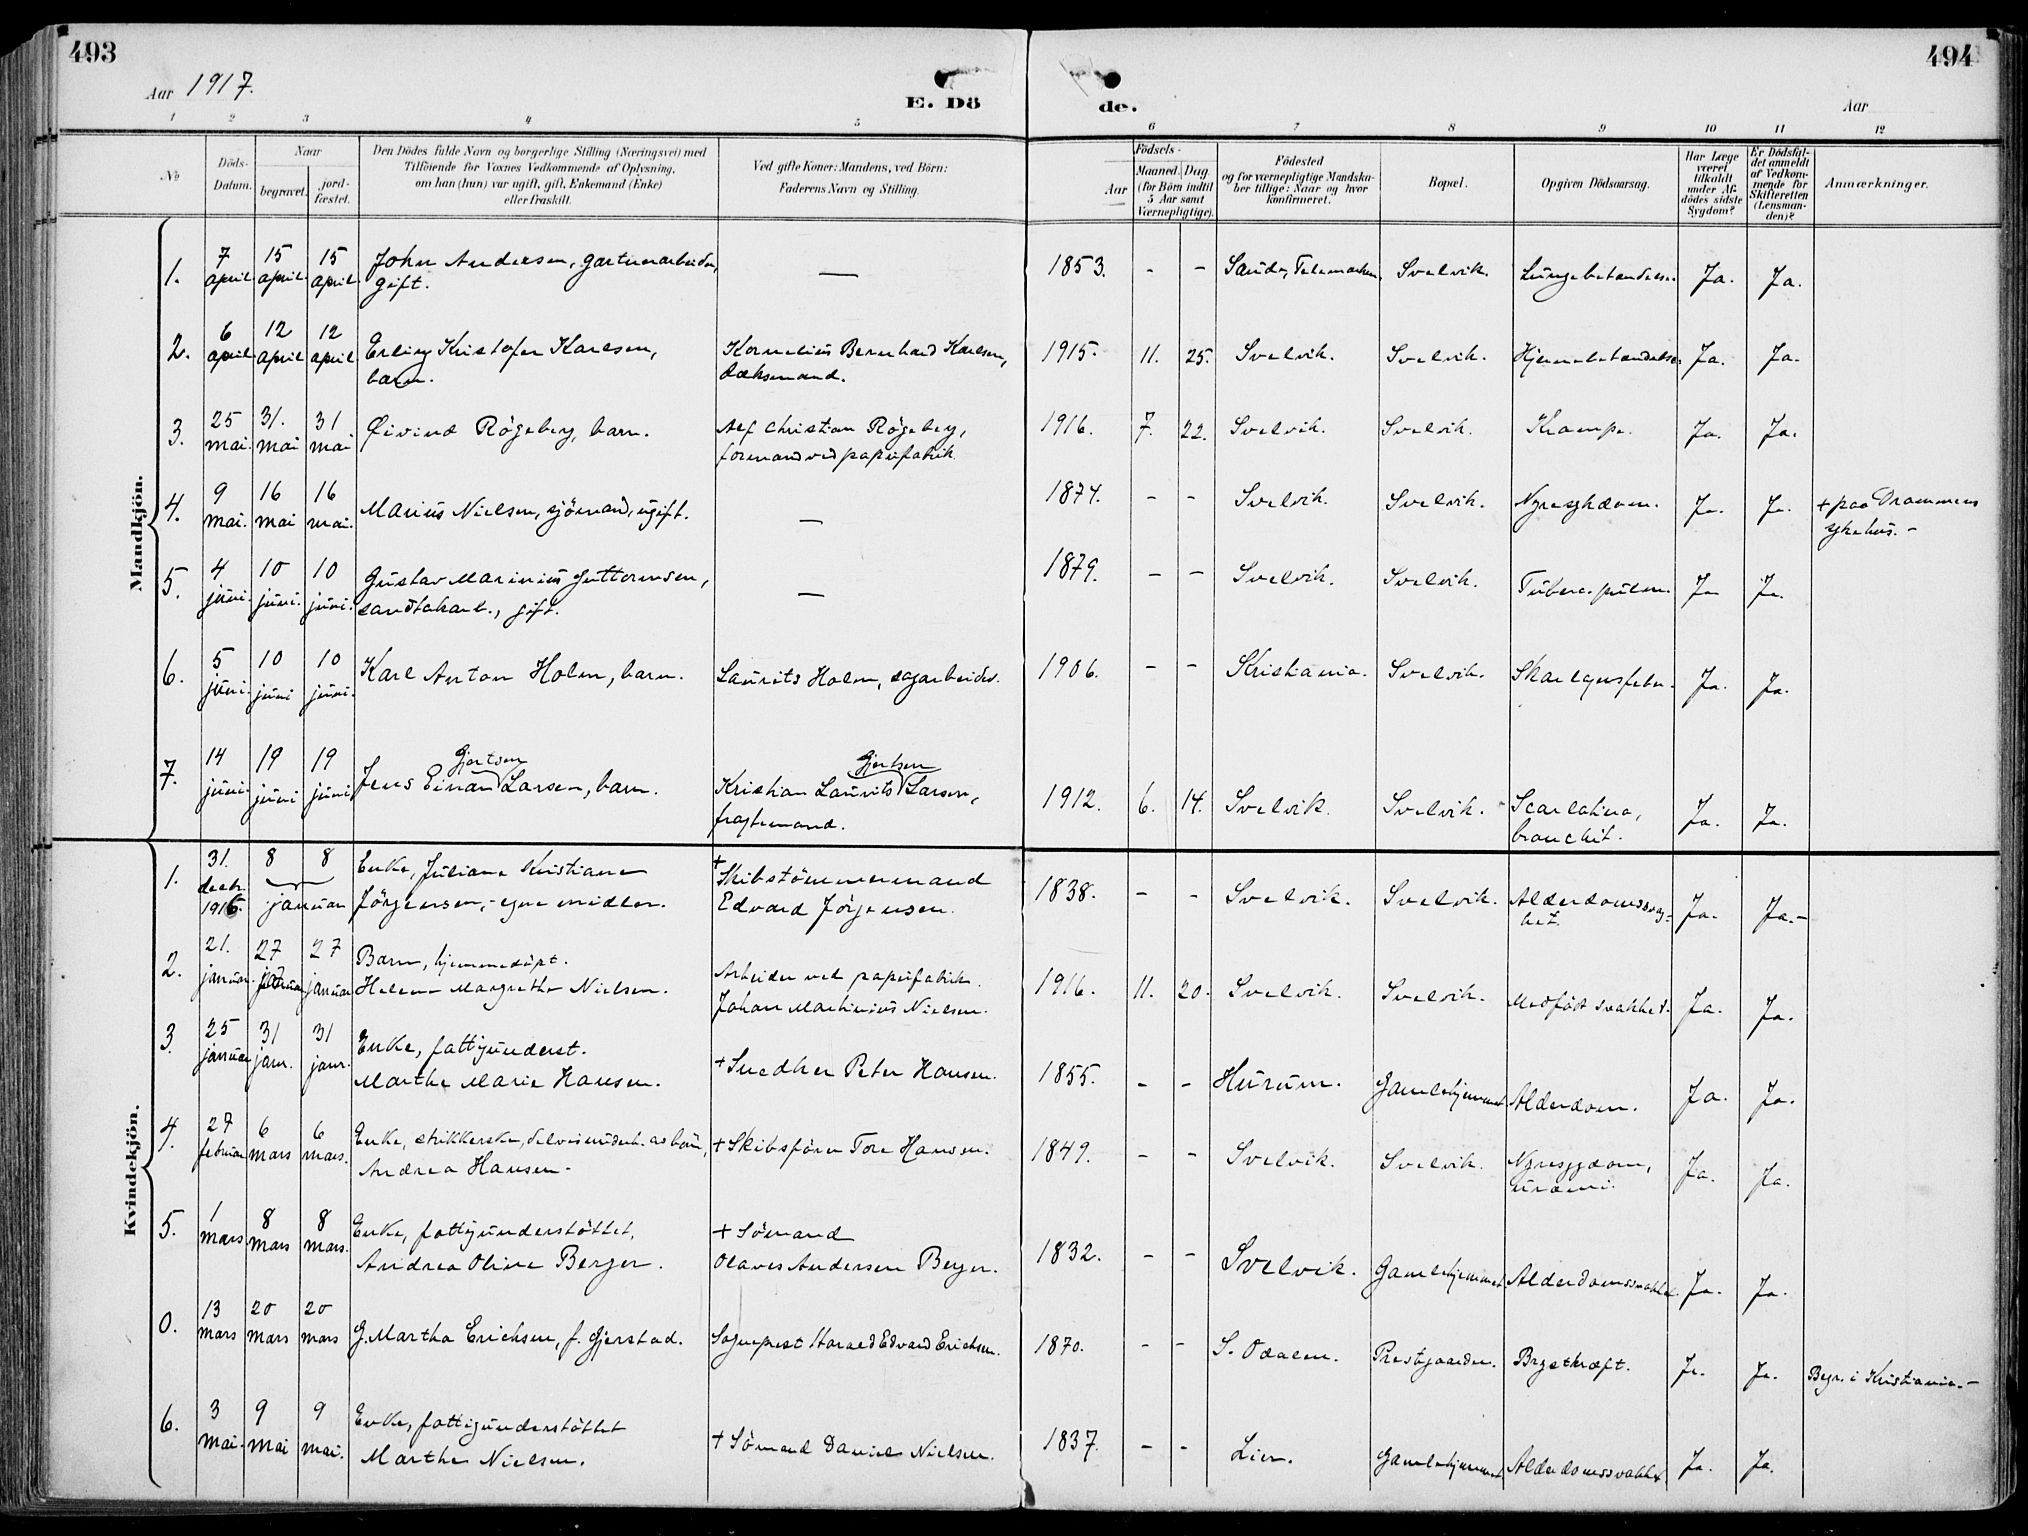 493
Aar 1917.
E. Dö
de.
494
Aar
1 2 3 4 5 6 7 8 9 10 11 12
No
Döds-Datum.
Naar
begravet. jord-fæstet.
Den Dödes fulde Navn og borgerlige Stilling (Næringsvei) med
Tilföiende for Voxnes Vedkommende af Oplysning,
om han (hun) var ugift, gift, Enkemand (Enke)
eller fraskilt.
Ved gifte Koner: Mandens, ved Börn:
Faderens Navn og Stilling.
Födsels-
Aar
Maaned. Dag
(for Börn indtil
5 Aar samt
Værnepligtige).
Födested
og for værnepligtige Mandska-
ber tillige: Naar og hvor
konfirmeret.
Bopæl.
Opgiven Dödsaarsag.
Har Læge
været
tilkaldt
under Af-
dödes sidste
Sygdom?
Er Dödsfal-
det anmeldt
af Vedkom-
mende for
Skifteretten
(Lensman-
den)?
Anmærkninger.
Mandkjön.
1. 7 april 15 april 15 april John Andersen, gartnerarbeider, — 1853. - - Saude, Telemarken. Svelvik. Lungebetændelse. Ja. Ja.
gift.
2. 6 april 12 april 12 april Erling Kristofer Karlsen, Kornelius Bernhard Karlsen, 1915. 11. 25. Svelvik. Svelvik. Hjernebetændelse. Ja. Ja.
barn. dæksmand.
3. 25 mai. 31. mai 31 mai Øivind Rögeberg, barn. Alf Christian Rögeberg, 1916. 7. 22. Svelvik. Svelvik. Krampe. Ja. Ja.
formand ved papirfabrik.
4. 9 mai. 16 mai 16 mai. Marius Nielsen, sjömand, ugift. — 1874. - - Svelvik. Svelvik. Nyresykdom. Ja. Ja. + paa Drammens
sykehus. -
5. 4 juni. 10 juni. 10 juni. Gustav Marinius Guttormsen, — 1879. - - Svelvik. Svelvik. Tuberc. pulm. Ja Ja.
gift.
6. 5 juni. 10 juni 10 juni. Karl Anton Holm, barn. Laurits Holm, sagarbeider. 1906. - - Kristiania. Svelvik. Skarlagensfeber. Ja. Ja.
Gjertsen Gjertsen
7. 14 juni. 19 juni 19 juni Jens Einar Larsen, barn. Kristian Laurits Larsen, 1912. 6. 14. Svelvik. Svelvik. Scarlatina, Ja. Ja.
fragtemand. bronchit.
Kvindekjön.
1. 31. decbr. 1916 8 8 januar Enke, Juliane Kristiane + Skibstömmermand 1838. - - Svelvik. Svelvik. Alderdomssvag- Ja. Ja.-
Jörgensen, - egne midler. Edvard Jörgensen. het.
2. 21. januar. 27 januar 27 januar Barn, hjemmedöpt. Arbeider ved papirfabrik. 1916. 11. 20. Svelvik. Svelvik. Medfödt svakhet. Ja. Ja.
Helene Margrethe Nielsen. Johan Martinius Nielsen.
3. 25 januar 31 janr. 31 janr. Enke, fattigunderst. + Snedker Peter Hansen. 1855. - - Hurum. Gamlehjemmet Alderdom. Ja. Ja.
Marthe Marie Hansen.
4. 27 februar 6 mars 6 mars. Enke, strikkerske, delvis underh. av barn, + Skibsförer Tore Hansen. 1849. - - Svelvik. Svelvik. Nyresygdom, Ja. Ja.
Andrea Hansen - uræmi.
5. 1 mars. 8 mars 8 mars. Enke, fattigunderstöttet, + Sömand 1832. - - Svelvik. Gamlehjemmet Alderdomssvakhet Ja. Ja.
Andrea Oline Berger. Olaves Andersen Berger.
0. 13 mars 20 mars 20 mars G. Martha Erichsen, f. Gjerstad. Sogneprest Harald Edvard Erichsen. 1870. - - S. Odalen. Prestgaarden. Brystkræft. Ja. Ja. Begr. i Kristiania. -
6. 3 mai. 9 mai 9 mai. Enke, fattigunderstöttet + Sömand Daniel Nielsen. 1837. - - Lier. Gamlehjemmet Alderdomssvakhet Ja. Ja.
Marthe Nielsen.